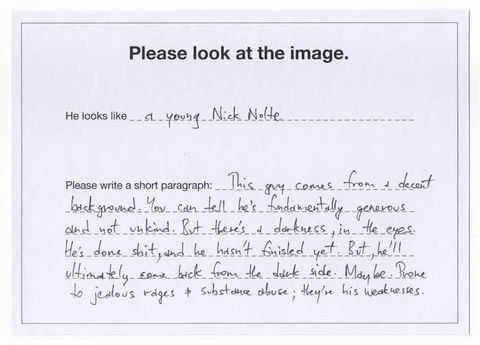 Please look at the image.
He looks like a young Nick Nolte
Please write a short paragraph: This guy comes from a decent
background. You can tell he's fundamentally generous
and not unkind. But there's a darkness, in the eyes.
He's done shit, and he hasn't finished yet. But, he'll
ultimately come back from the dark side. Maybe. Prone
to jealous rages & substance abuse; they're his weaknesses.